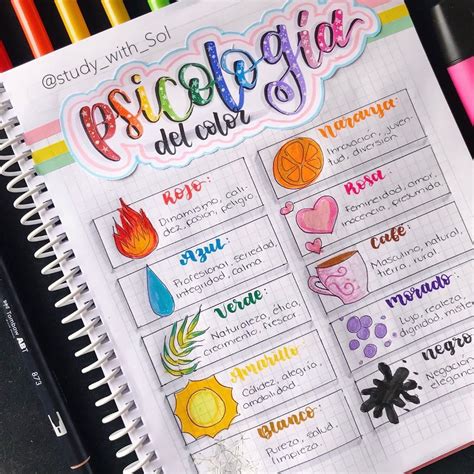 @study_with_Sol
psicología
del color
Rojo:
Dinamismo, cali-
dez, pasión, peligro
Azul:
Profesional, seriedad,
integridad, calma
Verde:
Naturaleza, ética,
crecimiento, frescor
Amarillo:
Cálidez, alegría,
amabilidad
Blanco:
Pureza, salud,
limpieza.
Naranja:
Innovación, juven-
tud, diversión
Rosa:
Feminidad, amor,
inocencia, presumida
Café:
Masculino, natural,
tierra, rural
Morado:
Lujo, realeza,
dignidad,
Negro:
Tombow ABT
873